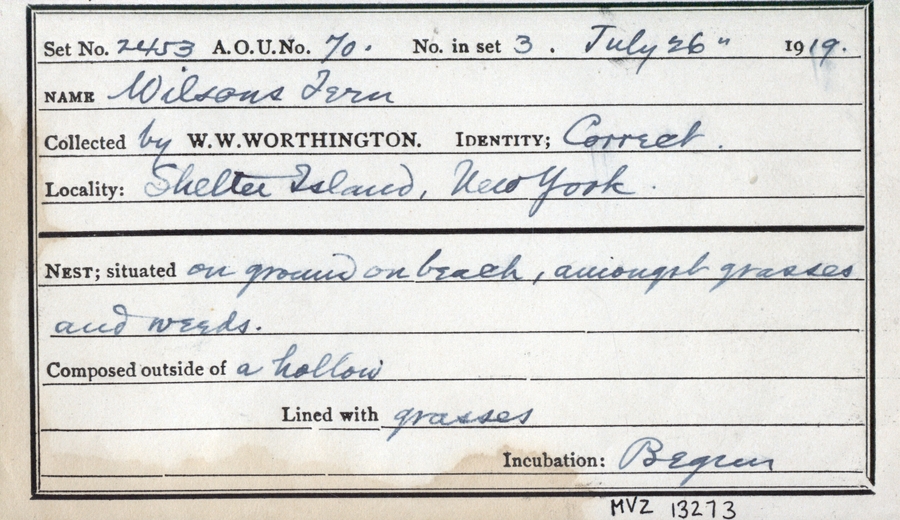 Set No. 2453 A.O.U.No. 70. No. in set 3. July 26" 1919.
NAME Wilsons Tern
Collected by W.W.WORTHINGTON. IDENTITY; Correct.
Locality: Shelter Island, New York.
NEST; situated on ground on beach, amongst grasses
and weeds.
Composed outside of a hollow
Lined with grasses
Incubation: Begun
MVZ 13273